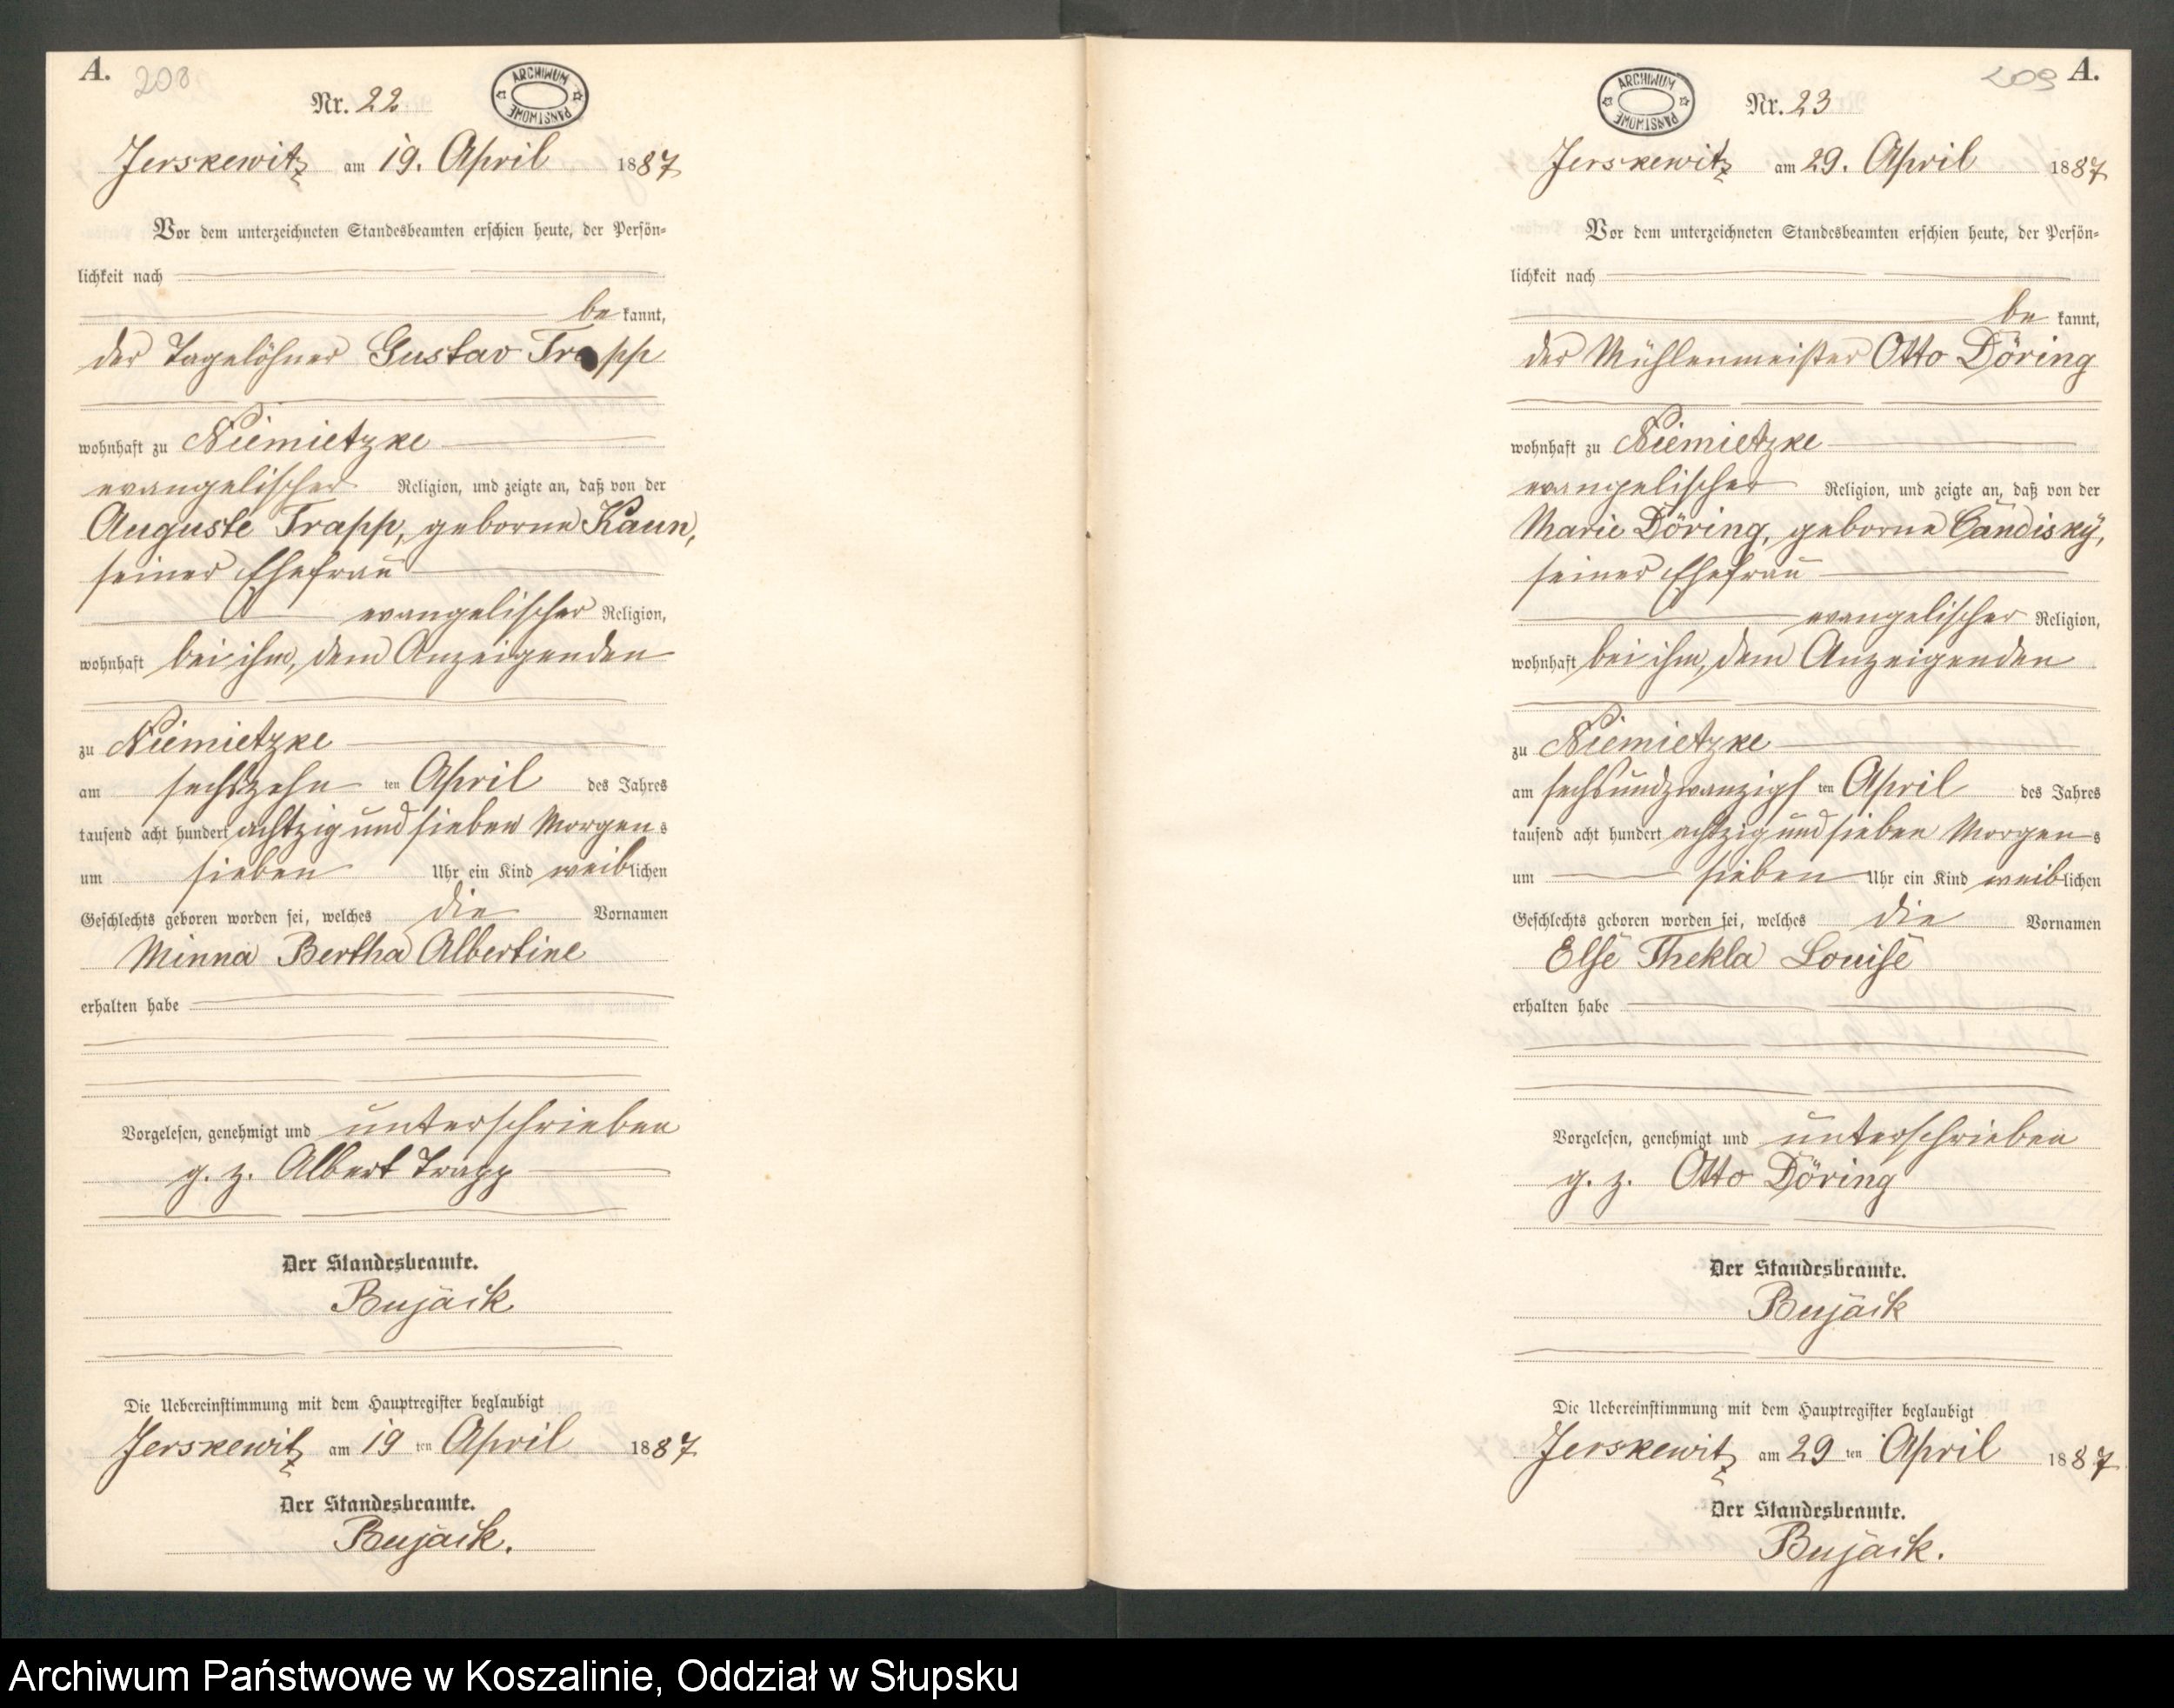 A.
208
Nr. 22
ARCHIWUM PAŃSTWOWE
Jerskewitz am 19. April 1887
Vor dem unterzeichneten Standesbeamten erschien heute, der Persön-
lichkeit nach
be kannt,
der Tagelöhner Gustav Trapp
wohnhaft zu Niemietzke
evangelischer Religion, und zeigte an, daß von der
Auguste Trapp, geborne Kaun,
seiner Ehefrau
evangelischer Religion,
wohnhaft bei ihm, dem Anzeigenden
zu Niemietzke
am sechszehn ten April des Jahres
tausend acht hundert achtzig und sieben Morgens
um sieben Uhr ein Kind weiblichen
Geschlechts geboren worden sei, welches die Vornamen
Minna Bertha Albertine
erhalten habe
Vorgelesen, genehmigt und unterschrieben
g. z. Albert Trapp
Der Standesbeamte.
Bujack
Die Uebereinstimmung mit dem Hauptregister beglaubigt
Jerskewitz am 19 ten April 1887
Der Standesbeamte.
Bujack.
209 A.
ARCHIWUM PAŃSTWOWE
Nr. 23
Jerskewitz am 29. April 1887
Vor dem unterzeichneten Standesbeamten erschien heute, der Persön-
lichkeit nach
be kannt,
der Mühlenmeister Otto Döring
wohnhaft zu Niemietzke
evangelischer Religion, und zeigte an, daß von der
Marie Döring, geborne Candisky,
seiner Ehefrau
evangelischer Religion,
wohnhaft bei ihm, dem Anzeigenden
zu Niemietzke
am sechsundzwanzigs ten April des Jahres
tausend acht hundert achtzig und sieben Morgens
um sieben Uhr ein Kind weiblichen
Geschlechts geboren worden sei, welches die Vornamen
Else Thekla Louise
erhalten habe
Vorgelesen, genehmigt und unterschrieben
g. z. Otto Döring
Der Standesbeamte.
Bujack
Die Uebereinstimmung mit dem Hauptregister beglaubigt
Jerskewitz am 29 ten April 1887
Der Standesbeamte.
Bujack.
Archiwum Państwowe w Koszalinie, Oddział w Słupsku